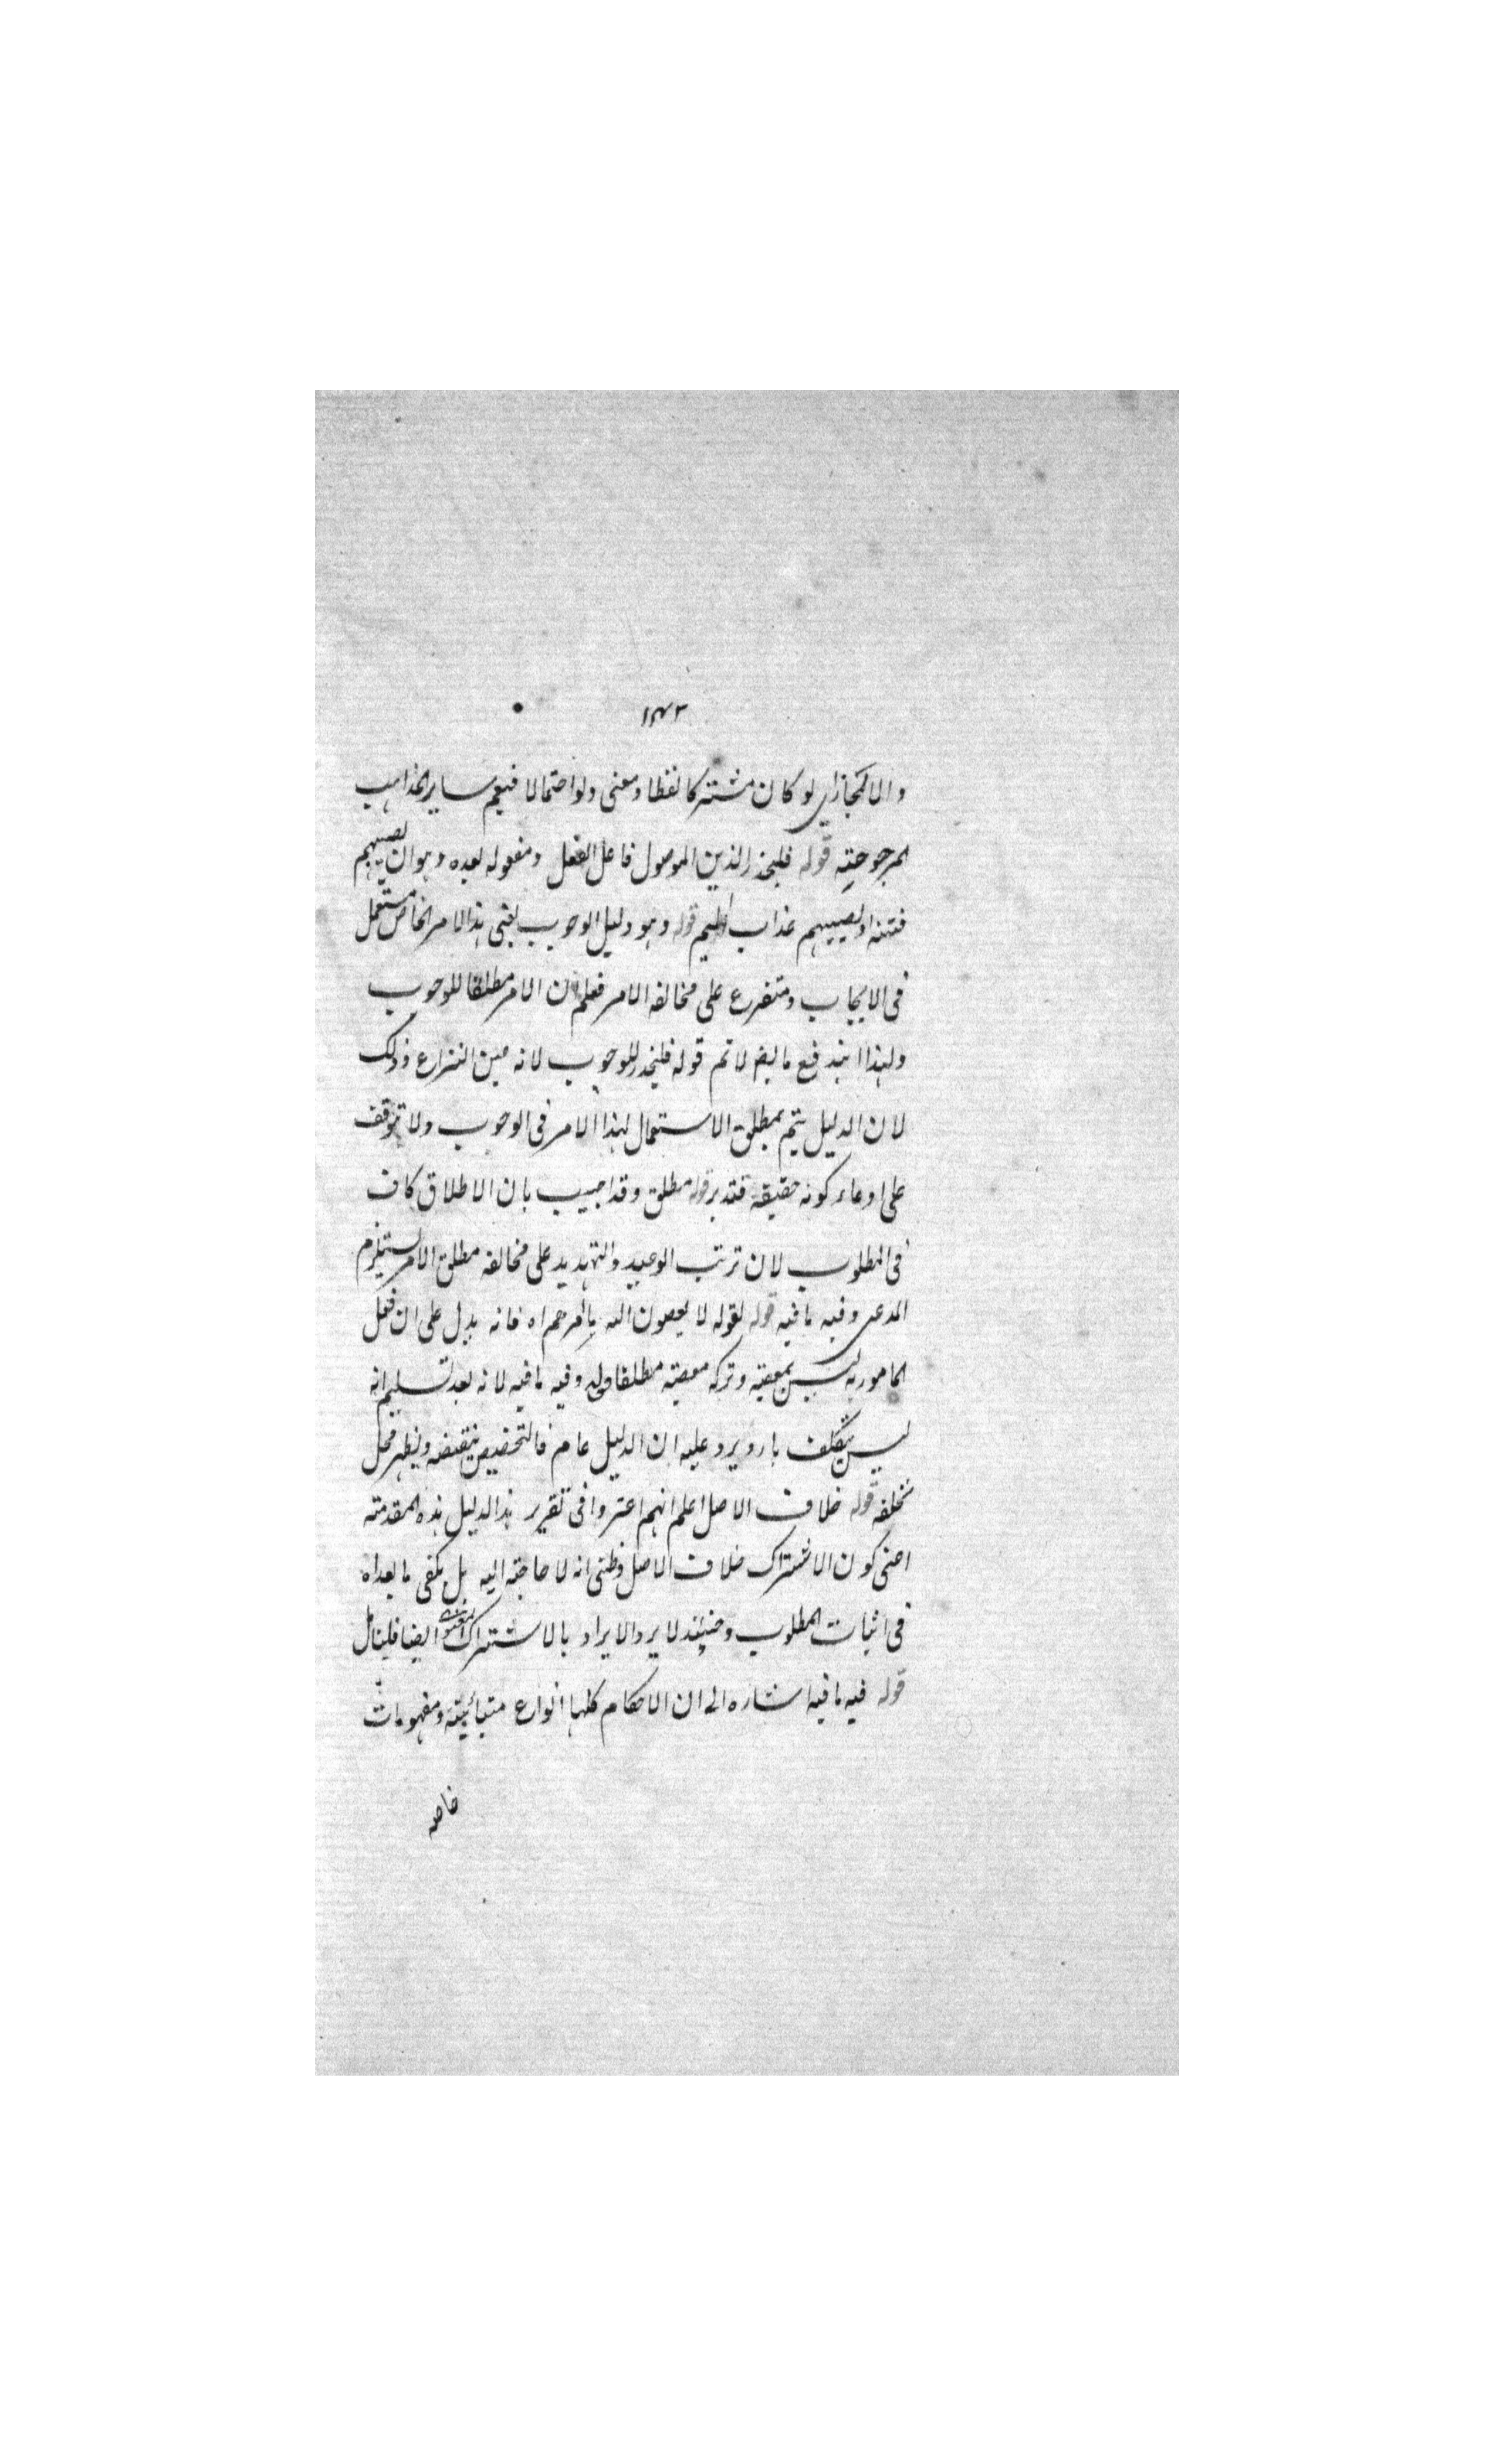 ١٤٢
والا لمجاز اى لو كان مشتركا لفظا ومعنى ولو احتمالا فيعم ساير المذاهب
المرجوحية قوله فليحذر الذين الموصول فاعل الفعل ومفعوله بعده وهو ان يصيبهم
فتنة او يصيبهم عذاب اليم قوله وهو دليل الوجوب يعنى هذا الامر الخاص مستعمل
فى الايجاب ومتفرع على مخالفة الامر فعلم ان الامر مطلقا للوجوب
ولهذا اندفع ما لا تم قوله فليحذر للوجوب لانه عين النزاع وذلك
لان الدليل يتم بمطلق الاستعمال لهذا الامر فى الوجوب ولا توقف
على ادعاء كونه حقيقة فتدبر قوله مطلق وقد اجيب بان الاطلاق كاف
فى المطلوب لان ترتب الوعيد والتهديد على مخالفة مطلق الامر يستلزم
المدعى وفيه ما فيه قوله لقوله لا يعصون الله ما امرهم اه فانه يدل على ان فعل
المامور به ليس بمعصية وتركه معصية مطلقا قوله وفيه ما فيه لانه بعد تسليم انه
ليس بتكلف بارد يرد عليه ان الدليل عام فالتخصيص ينقضه ويظهر محل
تخلفه قوله خلاف الاصل اعلم انهم اعتبروا فى تقرير هذا الدليل هذه المقدمة
اعنى كون الاشتراك خلاف الاصل وظنى انه لا حاجة اليه بل يكفى ما بعداه
فى اثبات المطلوب وحينئذ لا يرد الايراد بالاشتراك المعنوى ايضا فليتأمل
قوله فيه ما فيه اشاره الى ان الاحكام كلها انواع متبائنة ومفهومات
خاصه